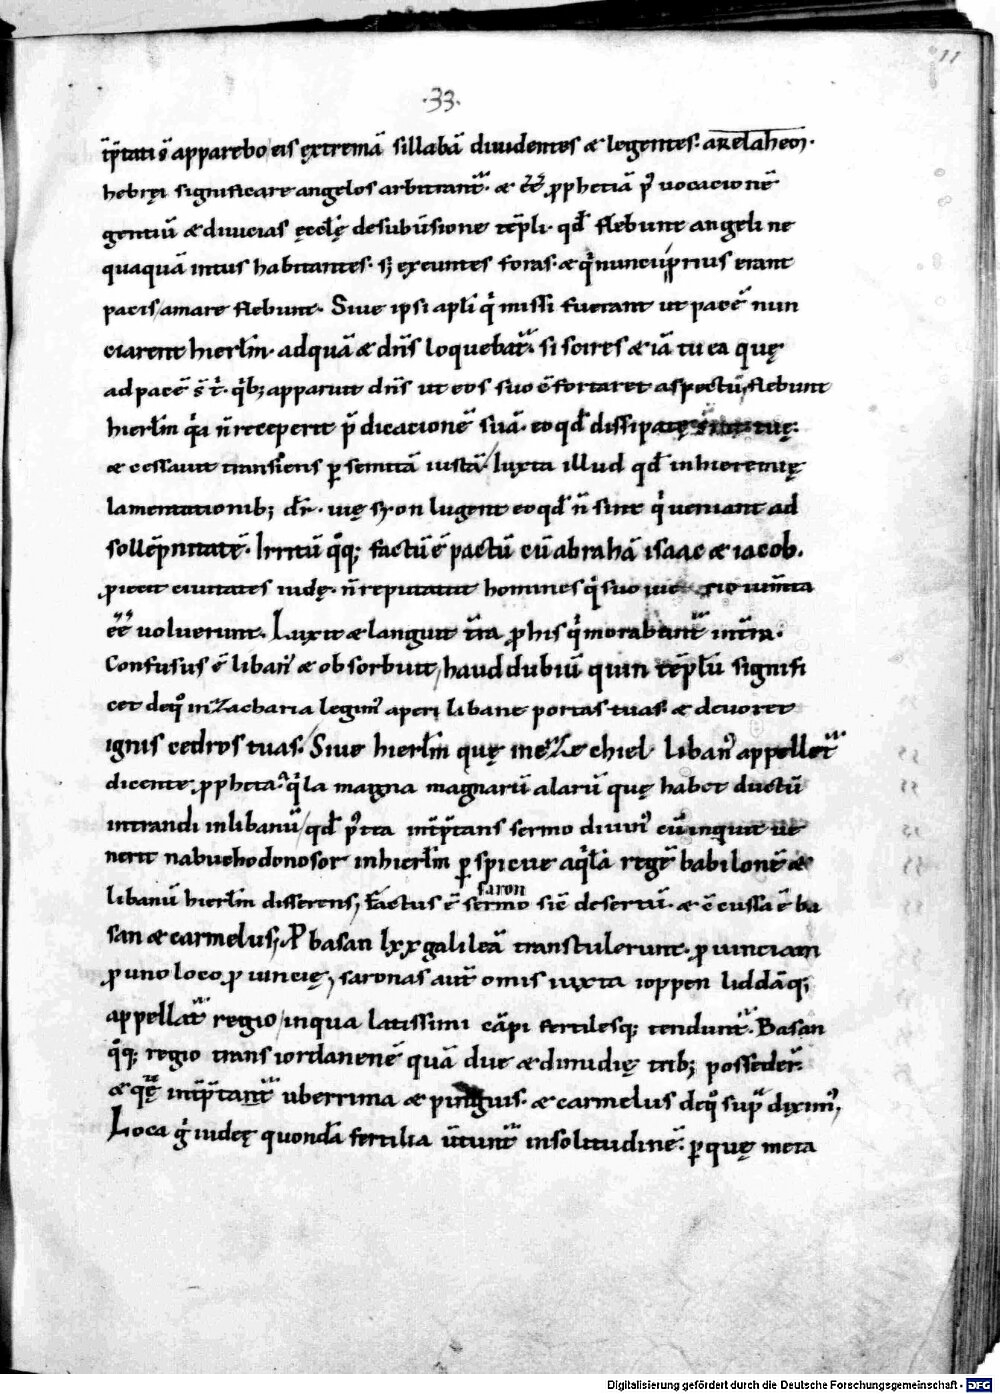 11
·33·
īp̄tati s̄ apparebo eis ęxtremā sillabā diuidentes & legentes· arelaheim·
hebręi significare angelos arbitrant᷑· & ēē p̱phetiā p̄ uocacionē
gentiū & diuicias ęcclę̄ de subūsione tēpli· qđ flebunt angeli ne
quaquā intus habitantes· sꝫ exeuntes foras· & qͥ nuncii prius erant
pacis amare flebunt· Siue ipsi apłi qͥ missi fuerant ut pacē nun
ciarent hierłm· ad quā & dn̄s loquebat᷑· si scires & iā tu ea quę
ad pacē s̄ t̄· qͥbꝫ apparuit dn̄s ut eos suo c̄fortaret aspectu, flebunt
hierłm qͥa n̄ receperit p̄dicacionē suā· eo qđ dissipatę sint uię·
& cessauit transiens ꝑ semitā iustā· Iuxta illud qđ in hieremię
lamentationibꝫ dr̄· uię syon lugent eo qđ n̄ sint qͥ ueniant ad
sollēpnitatē· Irritū qͦqꝫ factū ē pactū cū abrahā isaac & iacob·
p̱iecit ciuitates iudę· n̄ reputauit homines qͥ suo uicio iumta
ēē uoluerunt· Luxit & languit t̄ra p̱ his qͥ morabant᷑ in t̄ra·
Confusus ē liban᷒ & obsorbuit, haud dubiū quin tēplū signifi
cet de qͦ in zacharia legim᷒ aperi libane portas tuas· & deuoret
ignis cedros tuas· Siue hierłm quę in ezechiel liban᷒ appellet᷑
dicente p̱pheta· aqͥla magna magnarū alarū quę habet ductū
intrandi in libanū, qđ p̄tea int̄p̄tans sermo diuin᷒ cū inquit ue
nerit nabuchodonosor in hierłm ꝑspicue aqͥlā regē babilonē &
libanū hierłm disserens, Factus ē sermo sic̄ desertū· & c̄cussa ē ba
saron
san & carmelus; P basan lxx galileā transtulerunt· p̱uinciam
p̱ uno loco p̱uincię, saronas aut̄ omis iuxta ioppen liddāqꝫ
appellat᷑ regio, in qua latissimi cāpi fertilesqꝫ tendunt᷑· Basan
qͦqꝫ regio trans iordanenē quā due & dimidię tribꝫ possedēr
& quę̄ int̄p̄tant᷑ uberrima & pinguis· & carmelus de qͦ sup̄ dixim᷒,
Loca gͥ iudeę quondā fertilia ūtunt᷑ in solitudinē· ꝑ quę meta
Digitalisierung gefördert durch die Deutsche Forschungsgemeinschaft - DFG